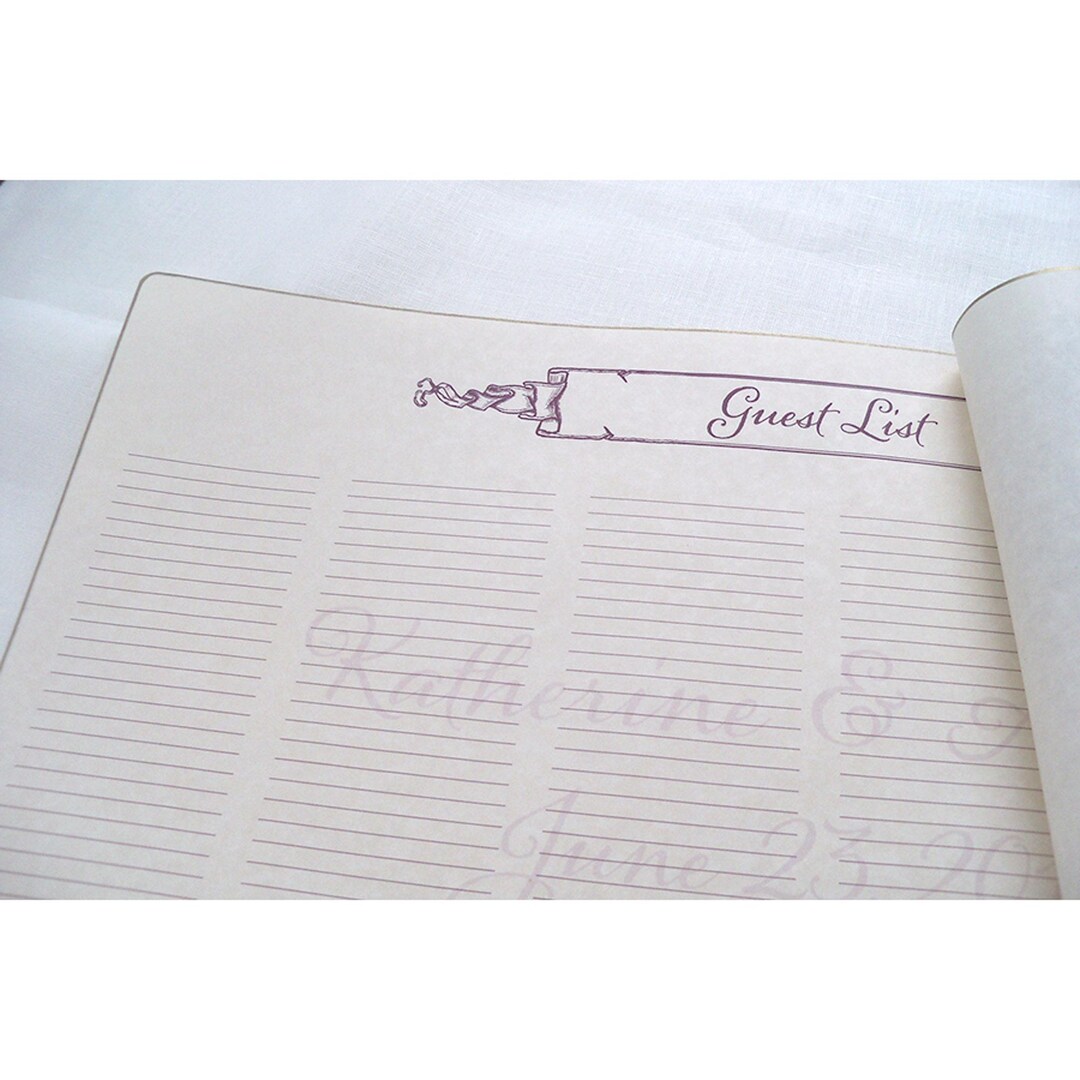 Guest List
Katherine &
June 23, 20